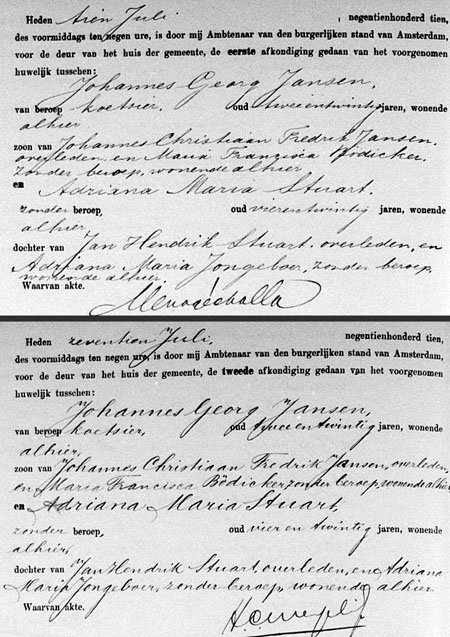 Heden tien Juli, negentienhonderd tien,
des voormiddags ten negen ure, is door mij Ambtenaar van den burgerlijken stand van Amsterdam,
voor de deur van het huis der gemeente, de eerste afkondiging gedaan van het voorgenomen
huwelijk tusschen:
Johannes Georg Jansen,
van beroep koetsier, oud twee en twintig jaren, wonende
alhier
zoon van Johannes Christiaan Fredrik Jansen.
overleden en Maria Francisca Bödicker.
zonder beroep, wonende alhier
en
Adriana Maria Stuart.
zonder beroep, oud vier en twintig jaren, wonende
alhier,
dochter van Jan Hendrik Stuart. overleden, en
Adriana Maria Jongeboer, zonder beroep,
wonende alhier
Waarvan akte.
Heden zeventien Juli, negentienhonderd tien,
des voormiddags ten negen ure, is door mij Ambtenaar van den burgerlijken stand van Amsterdam,
voor de deur van het huis der gemeente, de tweede afkondiging gedaan van het voorgenomen
huwelijk tusschen:
Johannes Georg Jansen,
van beroep koetsier, oud twee en twintig jaren, wonende
alhier,
zoon van Johannes Christiaan Fredrik Jansen, overleden,
en Maria Francisca Bödicker, zonder beroep, wonende alhier
en Adriana Maria Stuart,
zonder beroep, oud vier en twintig jaren, wonende
alhier,
dochter van Jan Hendrik Stuart, overleden, en Adriana
Maria Jongeboer, zonder beroep, wonende alhier
Waarvan akte.